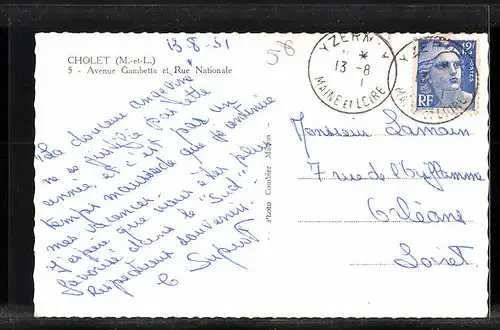 13-8-51
CHOLET (M.-et-L.)
5 - Avenue Gambetta et Rue Nationale
"La douceur angevine"
ne se justifie pas cette
année, et c'est par un
temps maussade que je continue
mes vacances.
J'espère que vous êtes plus
favorisé dans le "Sud".
Respectueux souvenir.
C Supiot
Photo Combier Macon
YZERNAY
13-8
MAINE ET LOIRE
12F
POSTES
RF
MAINE ET LOIRE
Monsieur Lamain
7 rue de l'
Orléans
Loiret